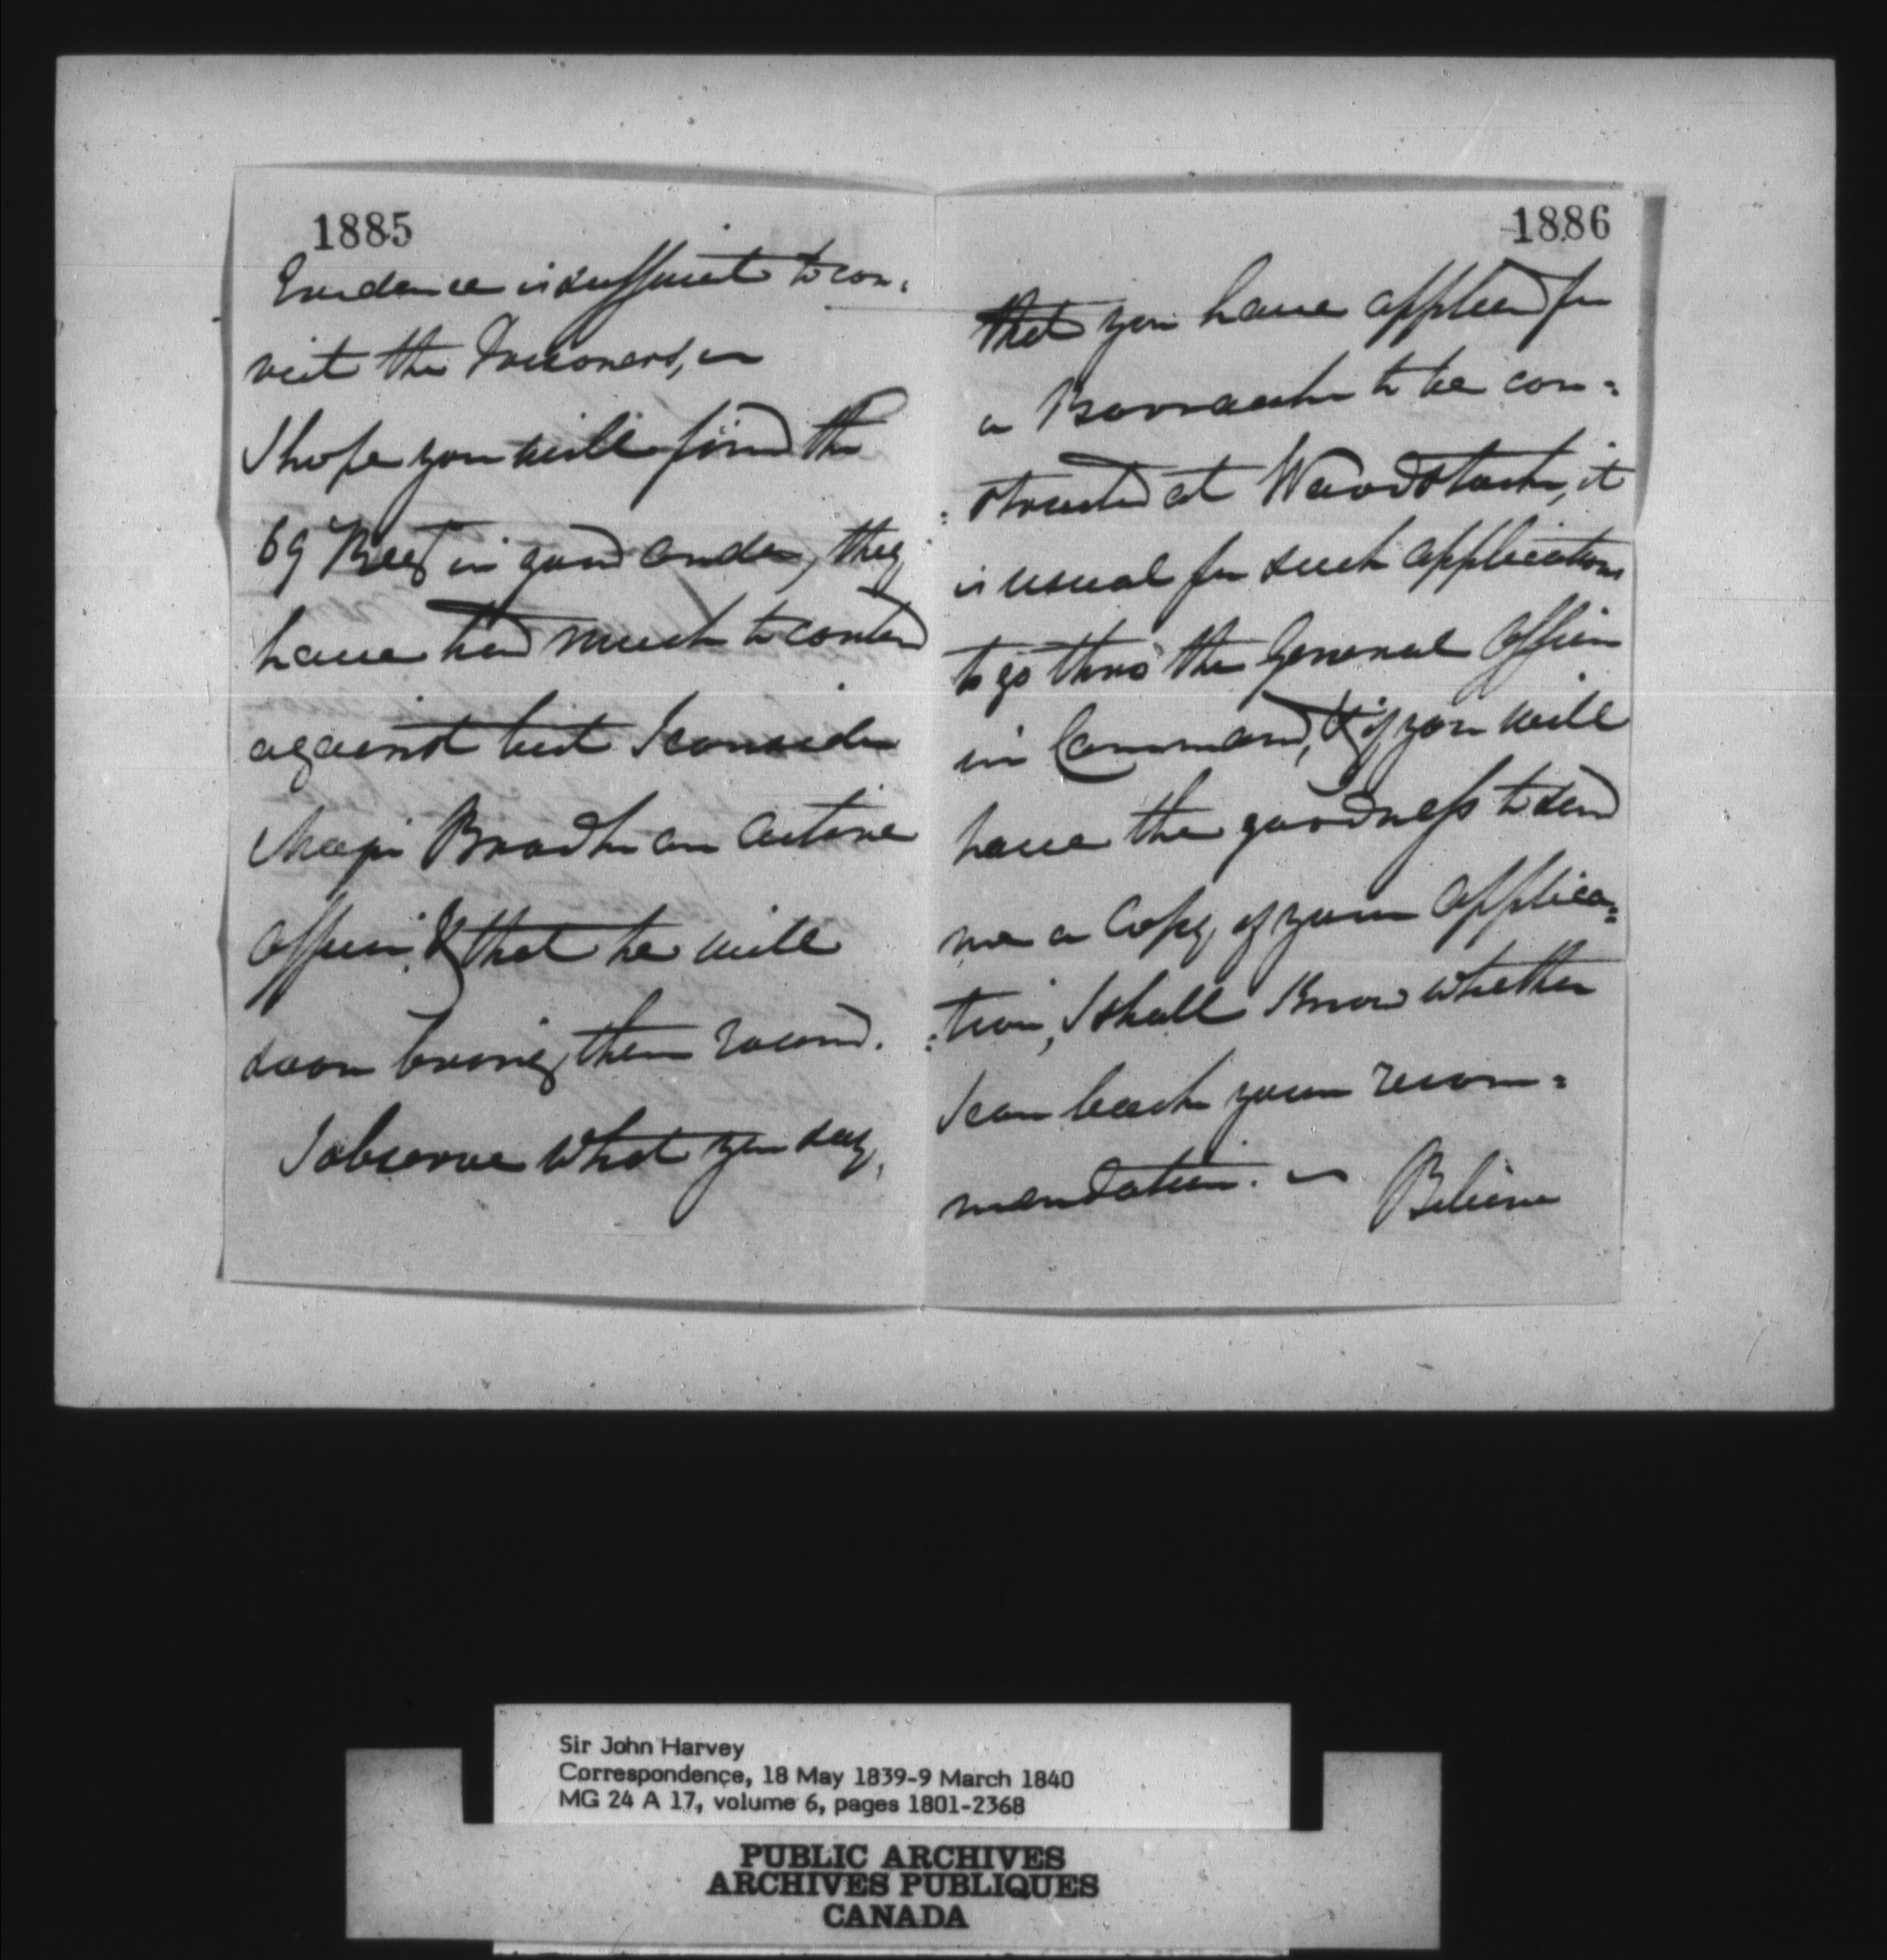 1885
Evidence is sufficient to con:
vict the Prisoners, —
I hope you will find the
69 Regt in good order, they
have had much to contend
against but I consider
Major Brooke an active
officer, & that he will
soon bring them round.
I observe what you say,
1886
that you have applied for
a Barracks to be con:
:structed at Woodstock, it
is usual for such applications
to go thro' the General Officer
in Command, & if you will
have the goodness to send
me a Copy of your applica:
:tion, I shall know whether
I can back your recom:
mendation. — Believe
Sir John Harvey
Correspondence, 18 May 1839-9 March 1840
MG 24 A 17, volume 6, pages 1801-2368
PUBLIC ARCHIVES
ARCHIVES PUBLIQUES
CANADA